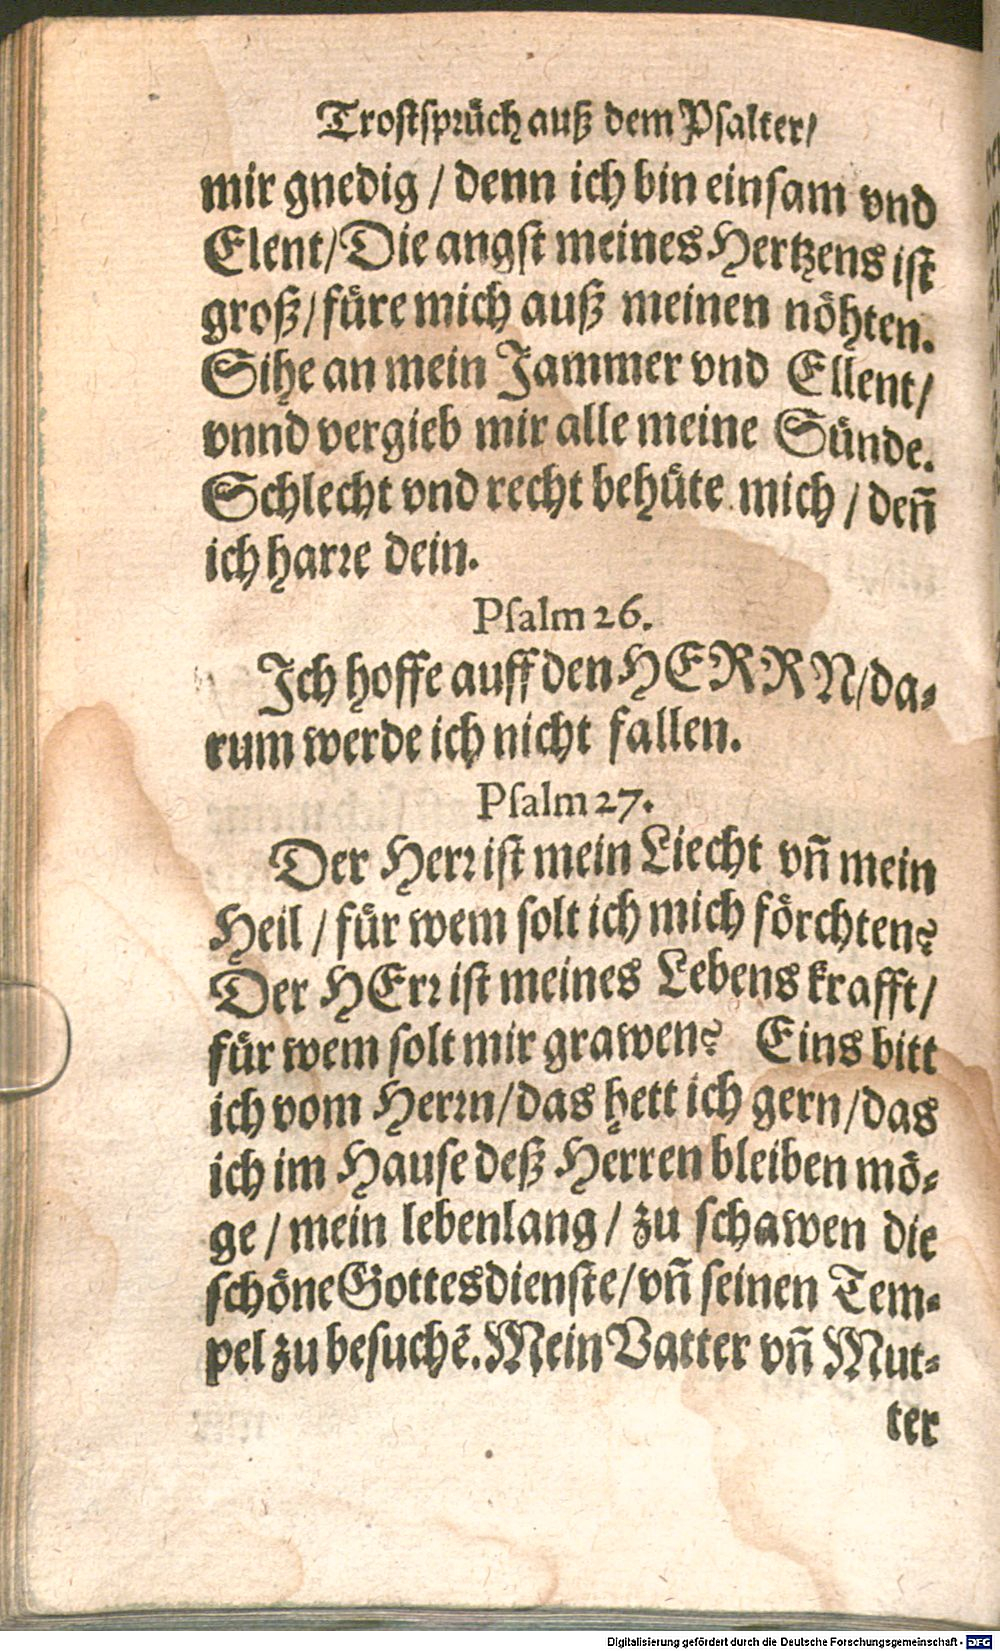 Trostsprüch auß dem Psalter/
mir gnedig / denn ich bin einsam vnd
Elent/Die angst meines Hertzens ist
groß/füre mich auß meinen nöhten.
Sihe an mein Jammer vnd Ellent/
vnnd vergieb mir alle meine Sünde.
Schlecht vnd recht behüte mich / deñ
ich harre dein.
Psalm 26.
Jch hoffe auff den HERRN/da-
rum werde ich nicht fallen.
Psalm 27.
Der Herr ist mein Liecht vñ mein
Heil / für wem solt ich mich förchten?
Der HErr ist meines Lebens krafft/
für wem solt mir grawen? Eins bitt
ich vom Herrn/das hett ich gern/das
ich im Hause deß Herren bleiben mö-
ge / mein lebenlang / zu schawen die
schöne Gottesdienste/vñ seinen Tem-
pel zu besuchẽ. Mein Vatter vñ Mut-
ter
Digitalisierung gefördert durch die Deutsche Forschungsgemeinschaft - DFG